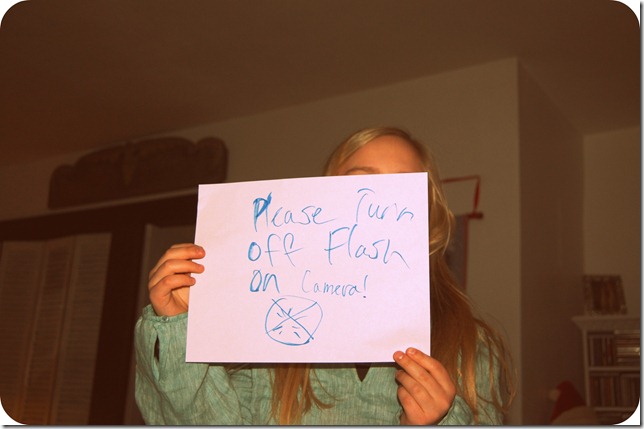 Please Turn
off Flash
on Camera!